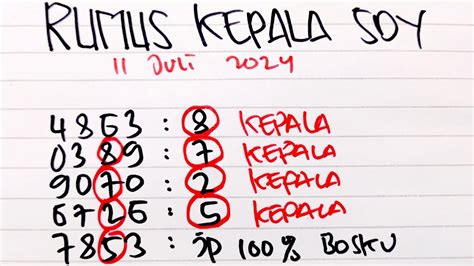 RUMUS KEPALA SDY
11 JULI 2024
4863 : 8 KEPALA
0389 : 7 KEPALA
9070 : 2 KEPALA
6726 : 5 KEPALA
7853 : JP 100% BOSKU